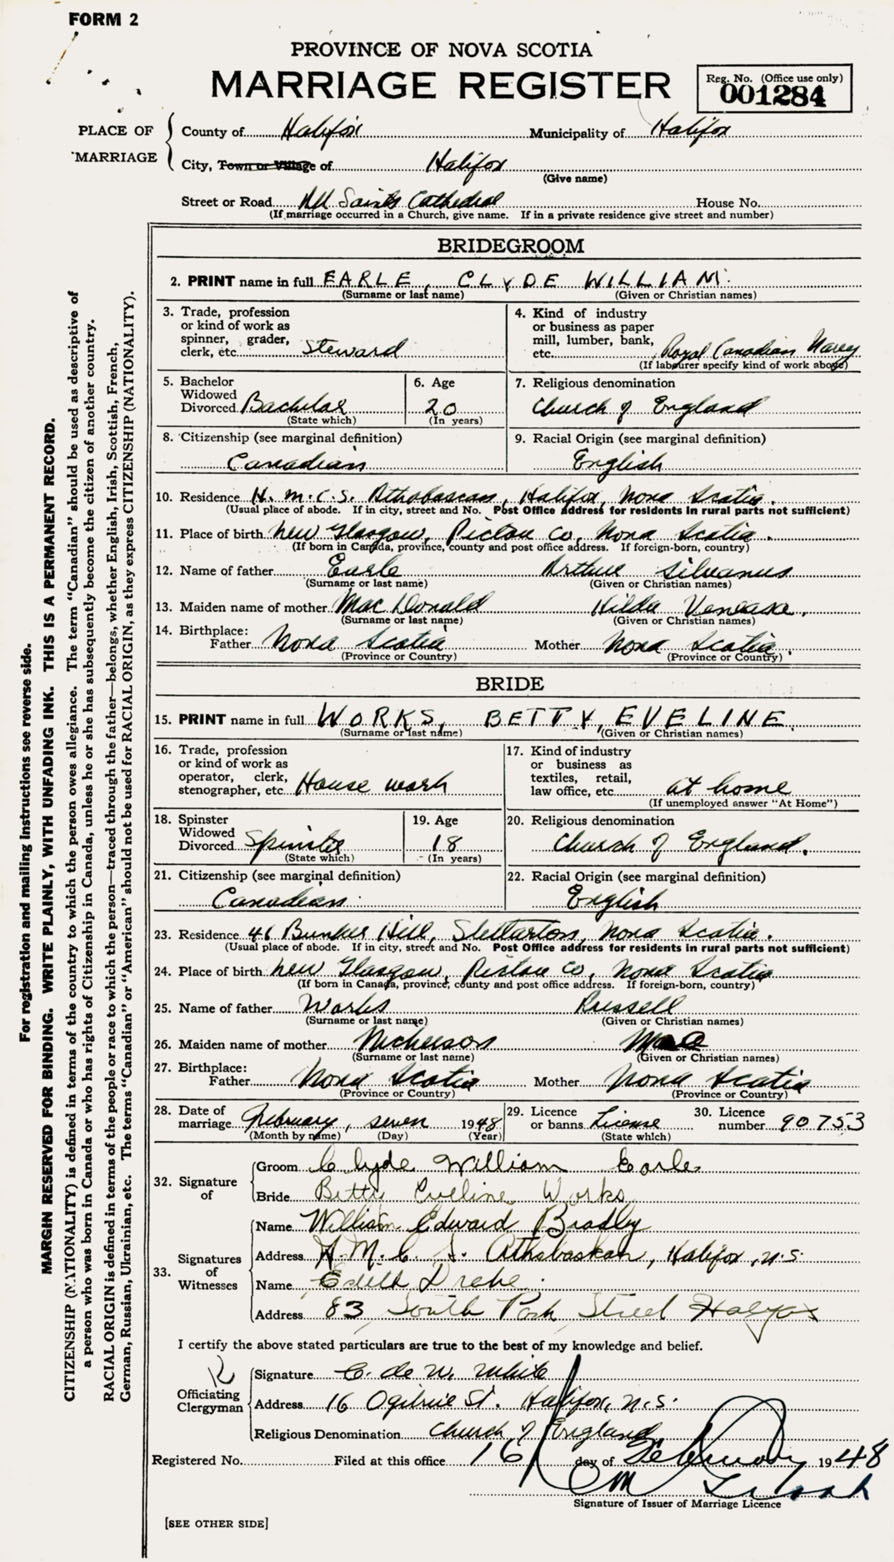 FORM 2
PROVINCE OF NOVA SCOTIA
MARRIAGE REGISTER
Reg. No. (Office use only)
001284
PLACE OF MARRIAGE
County of Halifax Municipality of Halifax
City, Town or Village of Halifax
(Give name)
Street or Road All Saints Cathedral House No.
(If marriage occurred in a Church, give name. If in a private residence give street and number)
BRIDEGROOM
2. PRINT name in full EARLE, CLYDE WILLIAM.
(Surname or last name) (Given or Christian names)
3. Trade, profession or kind of work as spinner, grader, clerk, etc. Steward
4. Kind of industry or business as paper mill, lumber, bank, etc. Royal Canadian Navy
(If labourer specify kind of work above)
5. Bachelor Widowed Divorced Bachelor
(State which)
6. Age 20
(In years)
7. Religious denomination
Church of England
8. Citizenship (see marginal definition)
Canadian
9. Racial Origin (see marginal definition)
English
10. Residence H.M.C.S. Athabascan, Halifax, Nova Scotia.
(Usual place of abode. If in city, street and No. Post Office address for residents in rural parts not sufficient)
11. Place of birth New Glasgow, Pictou Co, Nova Scotia.
(If born in Canada, province, county and post office address. If foreign-born, country)
12. Name of father Earle Arthur Silvanus
(Surname or last name) (Given or Christian names)
13. Maiden name of mother MacDonald Hilda
(Surname or last name) (Given or Christian names)
14. Birthplace:
Father Nova Scotia Mother Nova Scotia.
(Province or Country) (Province or Country)
BRIDE
15. PRINT name in full WORKS, BETTY, EVELINE
(Surname or last name) (Given or Christian names)
16. Trade, profession or kind of work as operator, clerk, stenographer, etc. House work
17. Kind of industry or business as textiles, retail, law office, etc. at home
(If unemployed answer "At Home")
18. Spinster Widowed Divorced Spinster
(State which)
19. Age 18
(In years)
20. Religious denomination
Church of England.
21. Citizenship (see marginal definition)
Canadian
22. Racial Origin (see marginal definition)
English
23. Residence 46 Bunker Hill, Stellarton, Nova Scotia.
(Usual place of abode. If in city, street and No. Post Office address for residents in rural parts not sufficient)
24. Place of birth New Glasgow, Pictou Co, Nova Scotia
(If born in Canada, province, county and post office address. If foreign-born, country)
25. Name of father Works Russell
(Surname or last name) (Given or Christian names)
26. Maiden name of mother Nicherson
(Surname or last name) (Given or Christian names)
27. Birthplace:
Father Nova Scotia Mother Nova Scotia
(Province or Country) (Province or Country)
28. Date of marriage February, seven 1948
(Month by name) (Day) (Year)
29. Licence or banns License
(State which)
30. Licence number 90753
32. Signature of
Groom Clyde William Earle
Bride Betty Eveline Works
33. Signatures of Witnesses
Name William Edward Bradley
Address H.M.C.S. Athabaskan, Halifax, N.S.
Name Edith Drake
Address 83 South Park Street Halifax
I certify the above stated particulars are true to the best of my knowledge and belief.
Officiating Clergyman
Signature C. de W. White
Address 16 Ogilvie St. Halifax, N.S.
Religious Denomination Church of England
Registered No. Filed at this office 16 day of February 1948
Signature of Issuer of Marriage Licence
[SEE OTHER SIDE]
For registration and mailing instructions see reverse side.
MARGIN RESERVED FOR BINDING. WRITE PLAINLY, WITH UNFADING INK. THIS IS A PERMANENT RECORD.
CITIZENSHIP (NATIONALITY) is defined in terms of the country to which the person owes allegiance. The term "Canadian" should be used as descriptive of
a person who was born in Canada or who has rights of Citizenship in Canada, unless he or she has subsequently become the citizen of another country.
RACIAL ORIGIN is defined in terms of the people or race to which the person—traced through the father—belongs, whether English, Irish, Scottish, French,
German, Russian, Ukrainian, etc. The terms "Canadian" or "American" should not be used for RACIAL ORIGIN, as they express CITIZENSHIP (NATIONALITY).